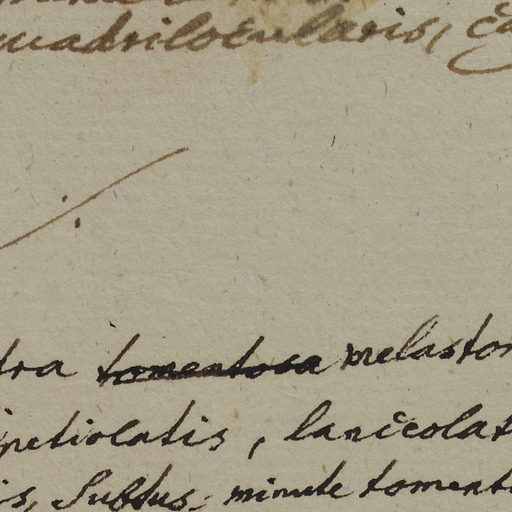 quadrilocularis,
tra tomentosa melastom
petiolatis, lanceolat
is, Subtus, minute toment